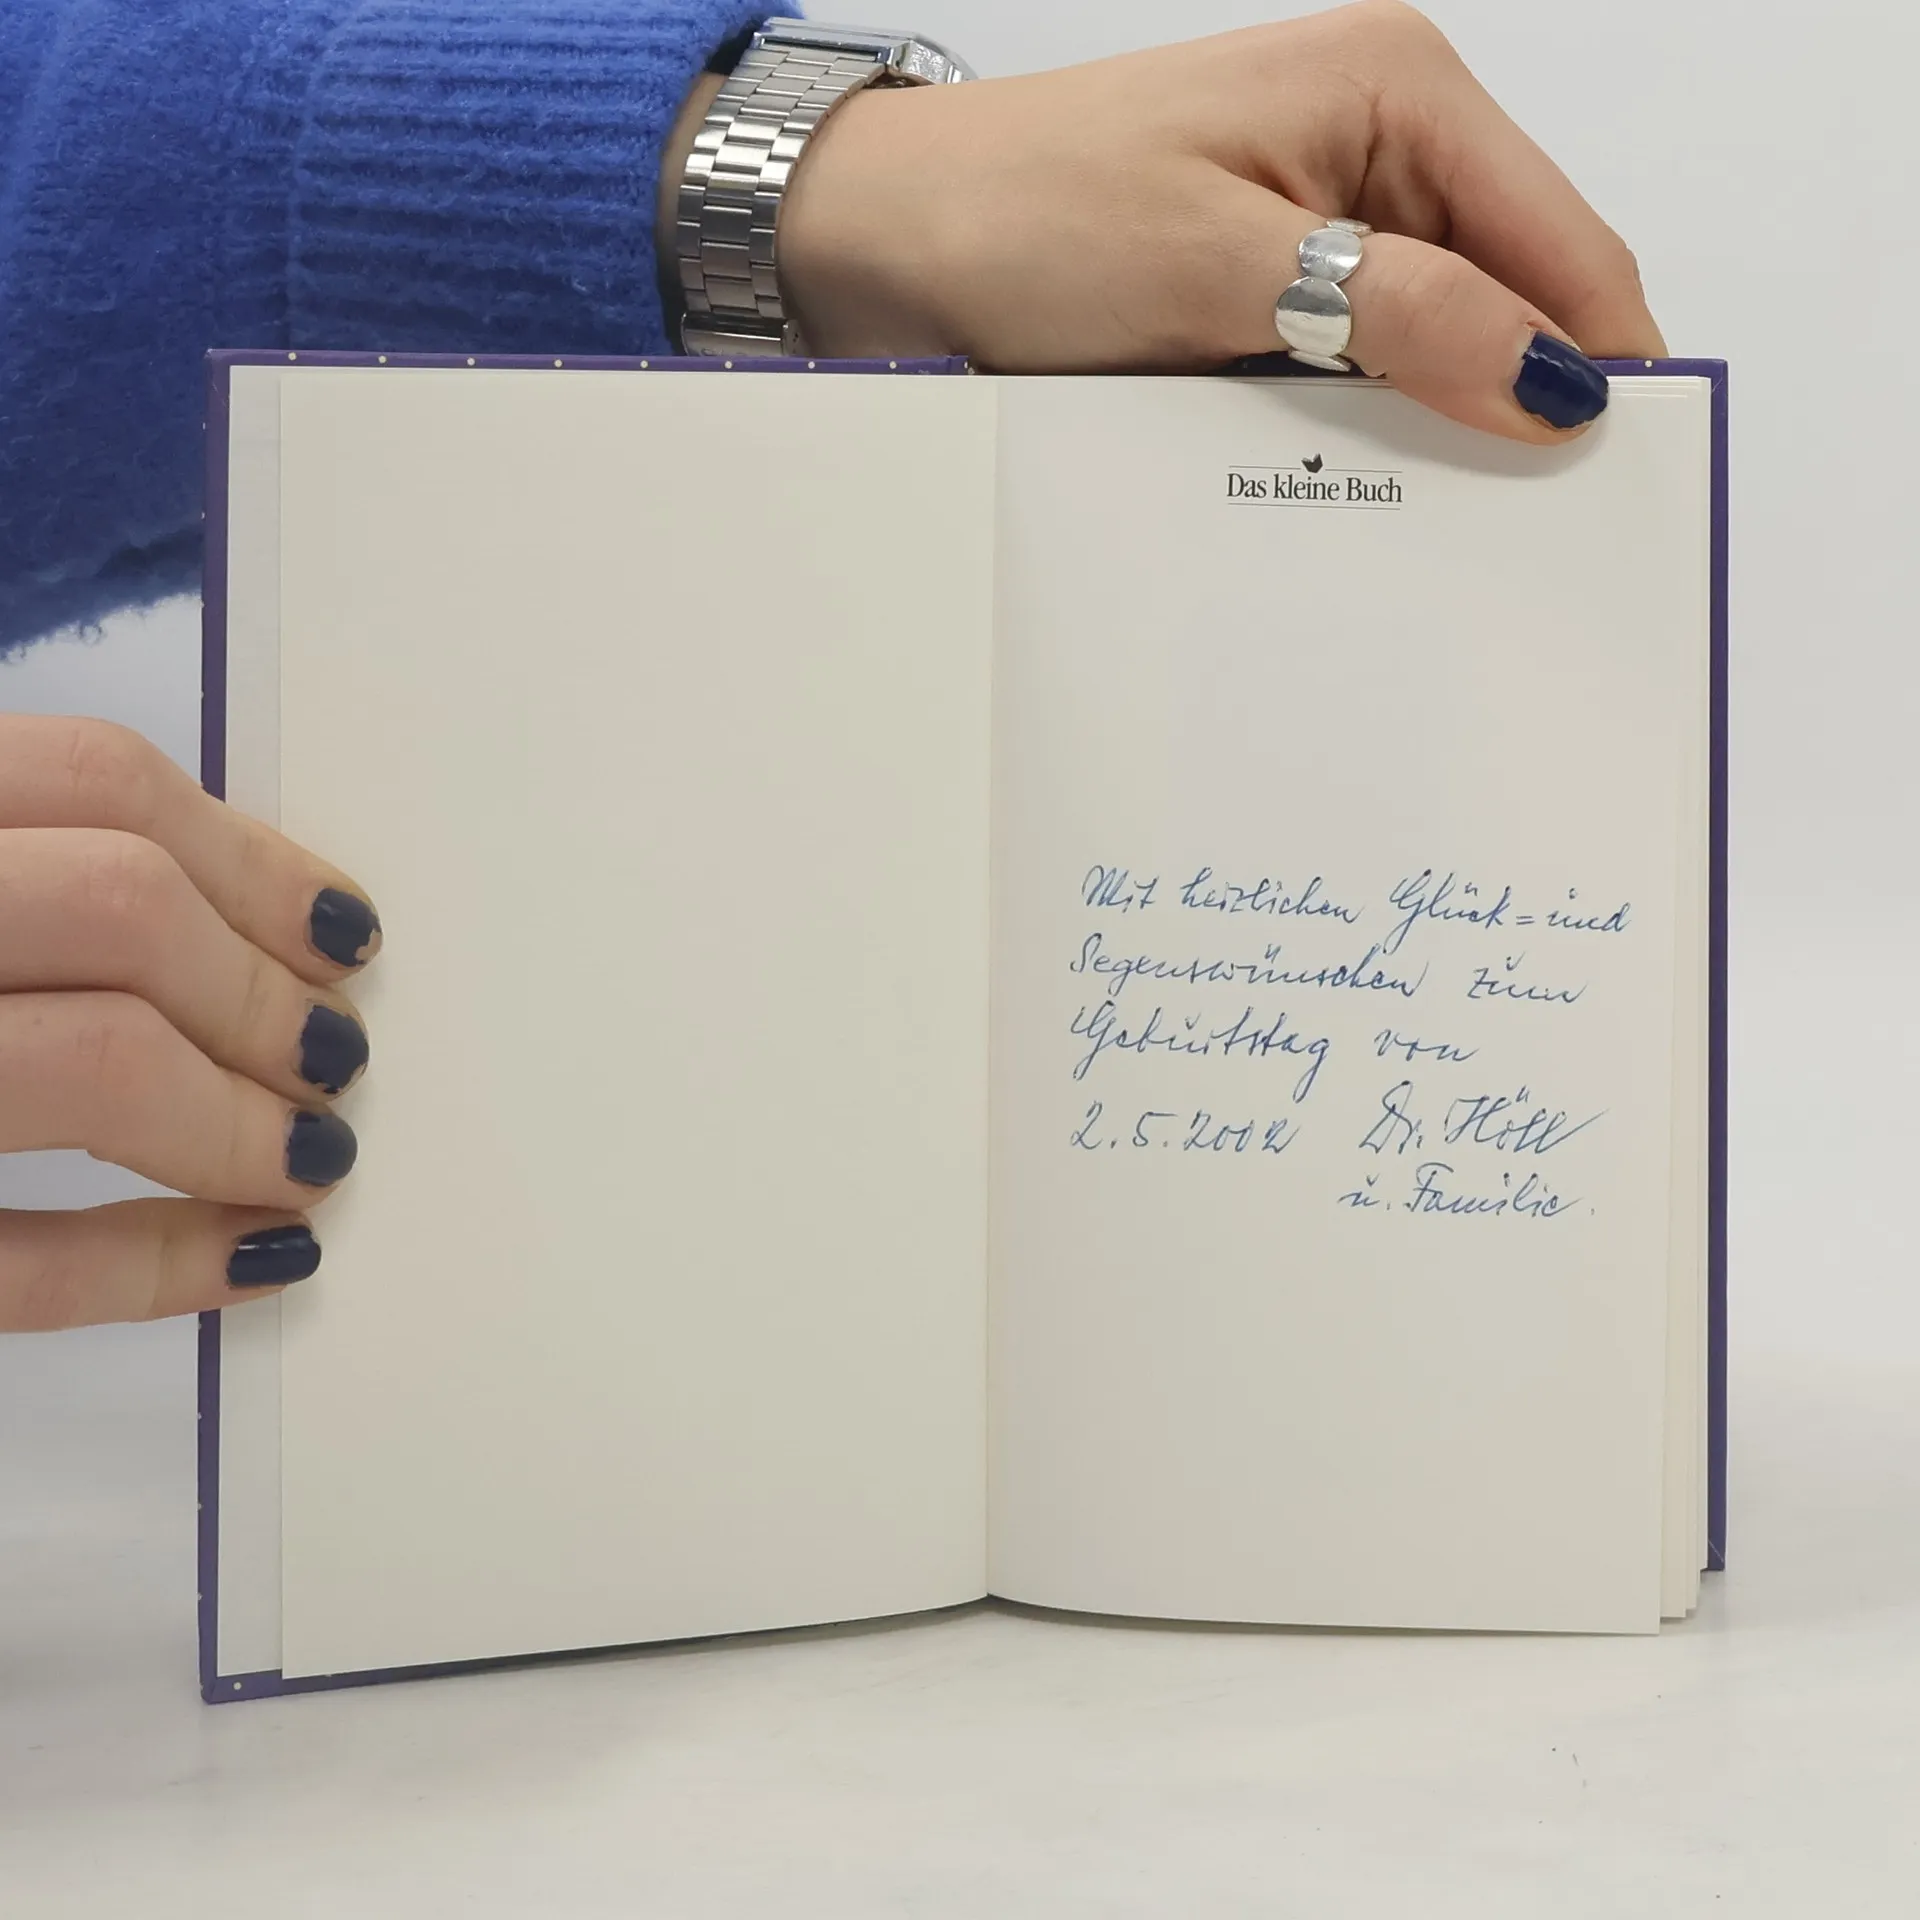 Das kleine Buch
Mit herzlichen Glück= und
Segenswünschen zum
Geburtstag von
2.5.2002 Dr. Höll
u. Familie.